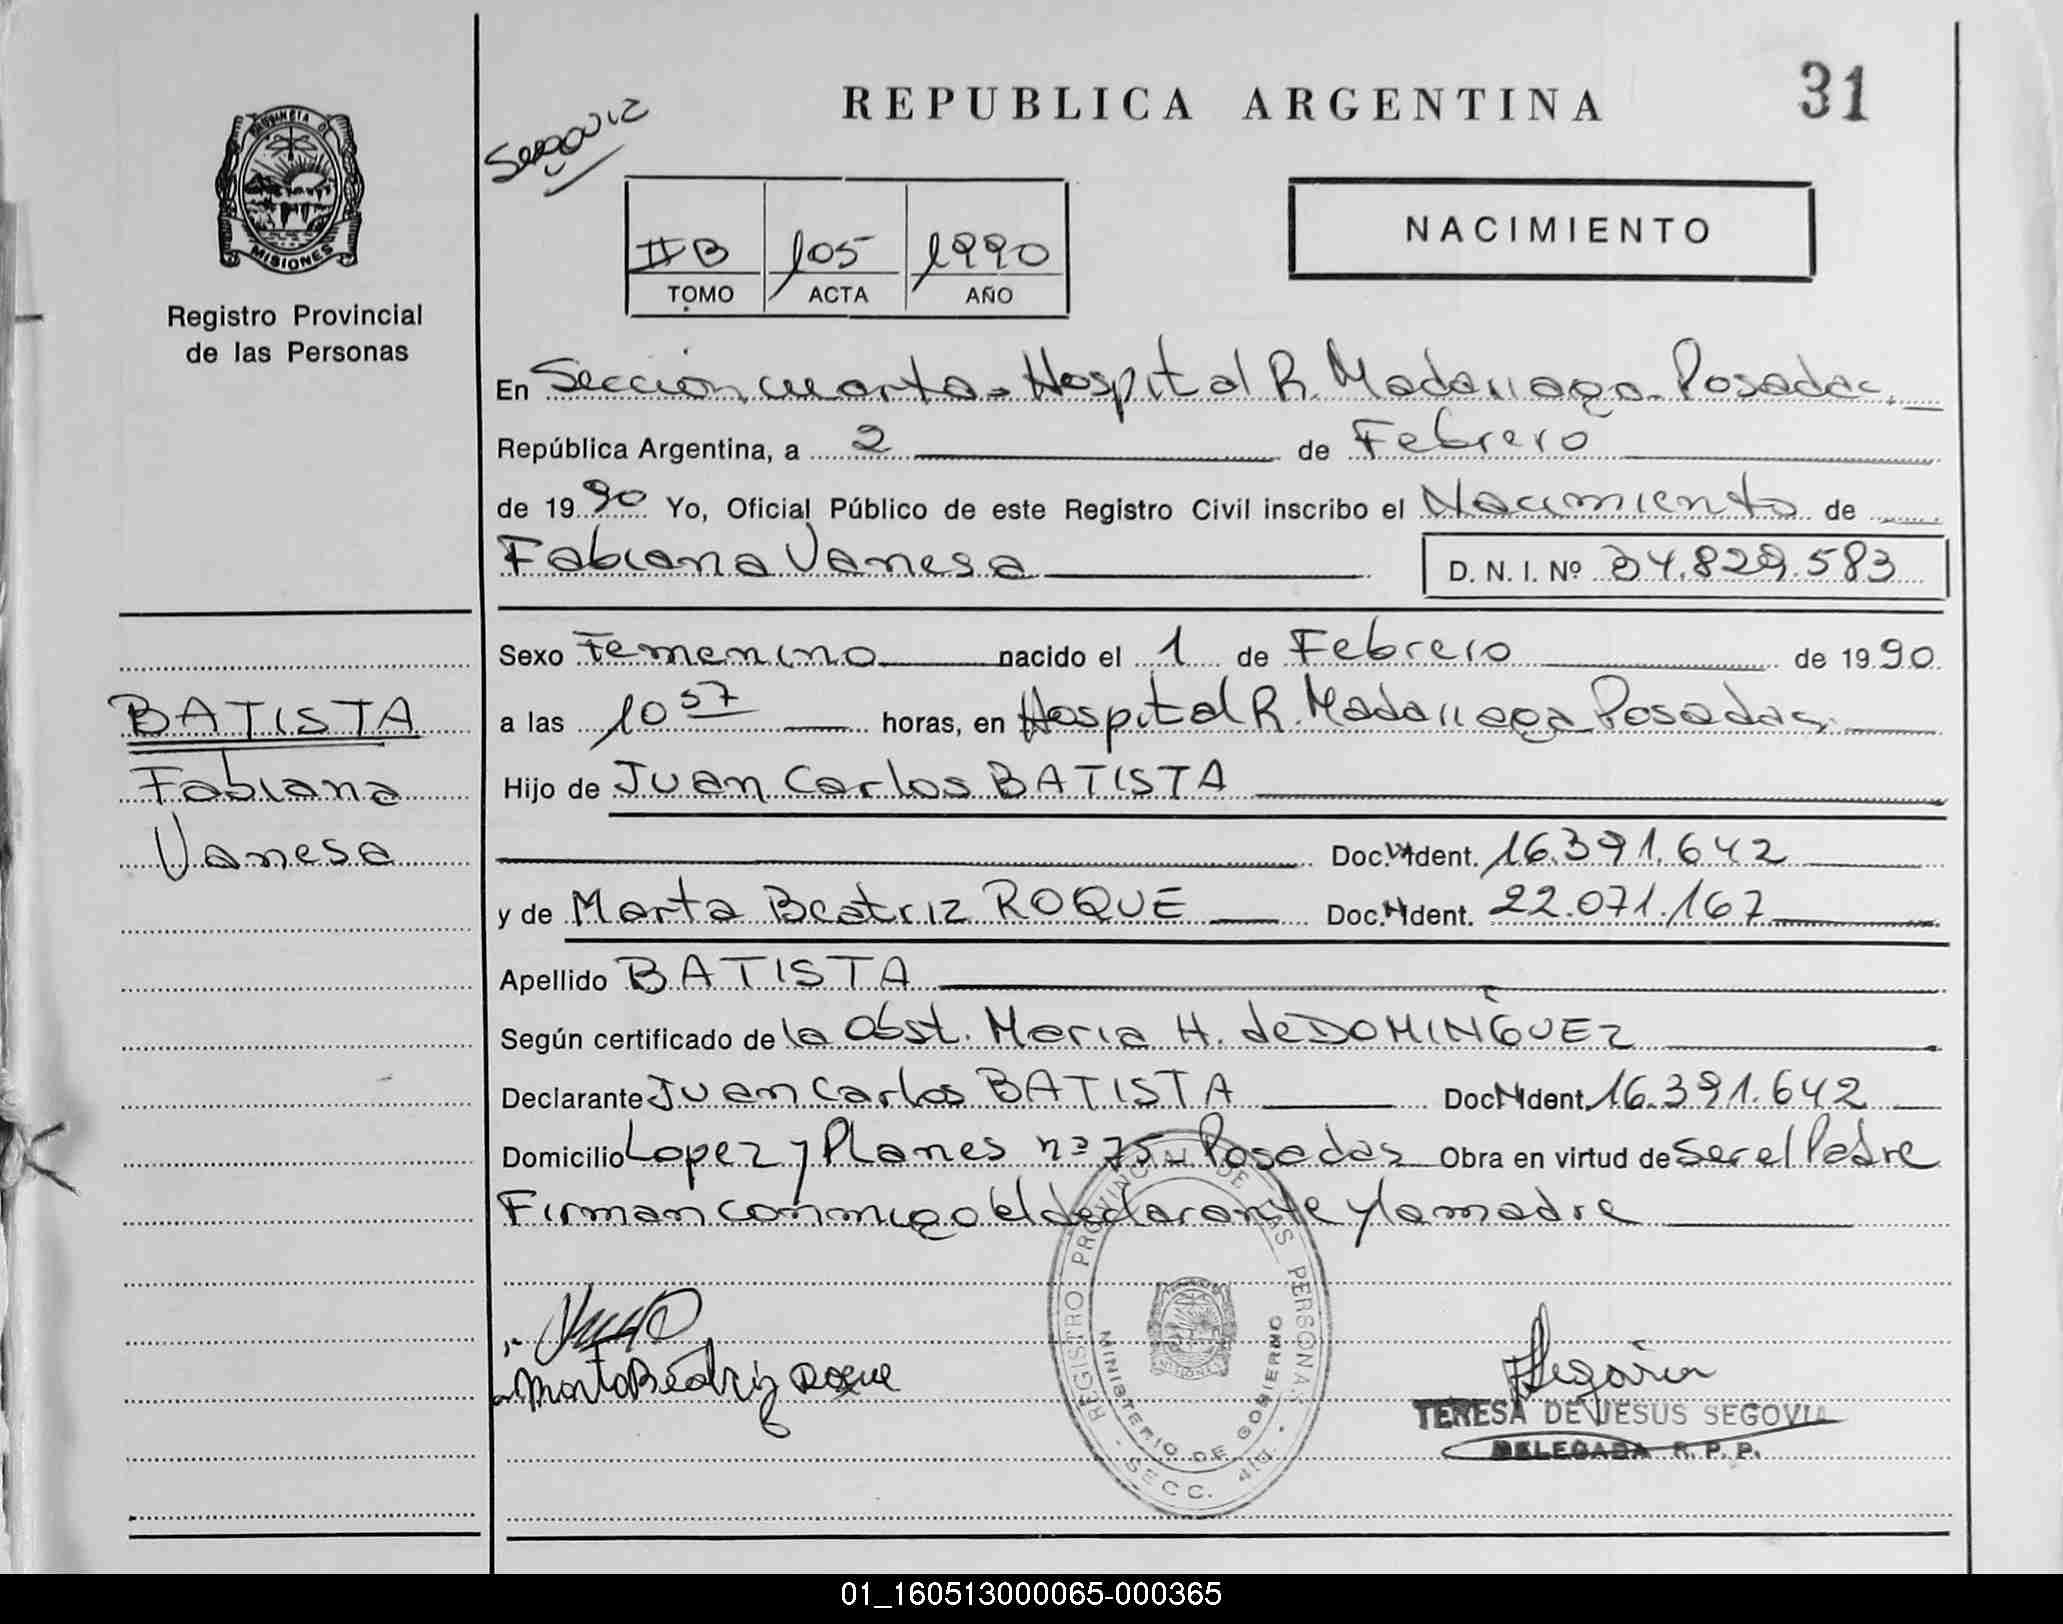 REPUBLICA ARGENTINA
31
Segovia
PROVINCIA DE
MISIONES
Registro Provincial
de las Personas
IIB 105 1990
TOMO ACTA AÑO
NACIMIENTO
En Sección cuarta - Hospital R. Madariaga - Posadas.
República Argentina, a 2 de Febrero
de 1990 Yo, Oficial Público de este Registro Civil inscribo el Nacimiento de
Fabiana Vanesa D. N. I. Nº 34.829.583
Sexo Femenino nacido el 1 de Febrero de 1990
BATISTA
Fabiana
Vanesa
a las 10 57 horas, en Hospital R. Madariaga Posadas.
Hijo de Juan Carlos BATISTA
Doc. Ident. 16.391.642
y de Marta Beatriz ROQUE Doc. Ident. 22.071.167
Apellido BATISTA
Según certificado de la Obst. Maria H. de DOMINGUEZ
Declarante Juan Carlos BATISTA Doc Ident. 16.391.642
Domicilio Lopez y Planes nº 75 - Posadas Obra en virtud de ser el Padre
Firman conmigo el declarante y la madre
Marta Beatriz Roque
REGISTRO PROVINCIAL DE LAS PERSONAS
MINISTERIO DE GOBIERNO
MISIONES
SECC. 4ta.
Segovia
TERESA DE JESUS SEGOVIA
DELEGADA R. P. P.
01_160513000065-000365